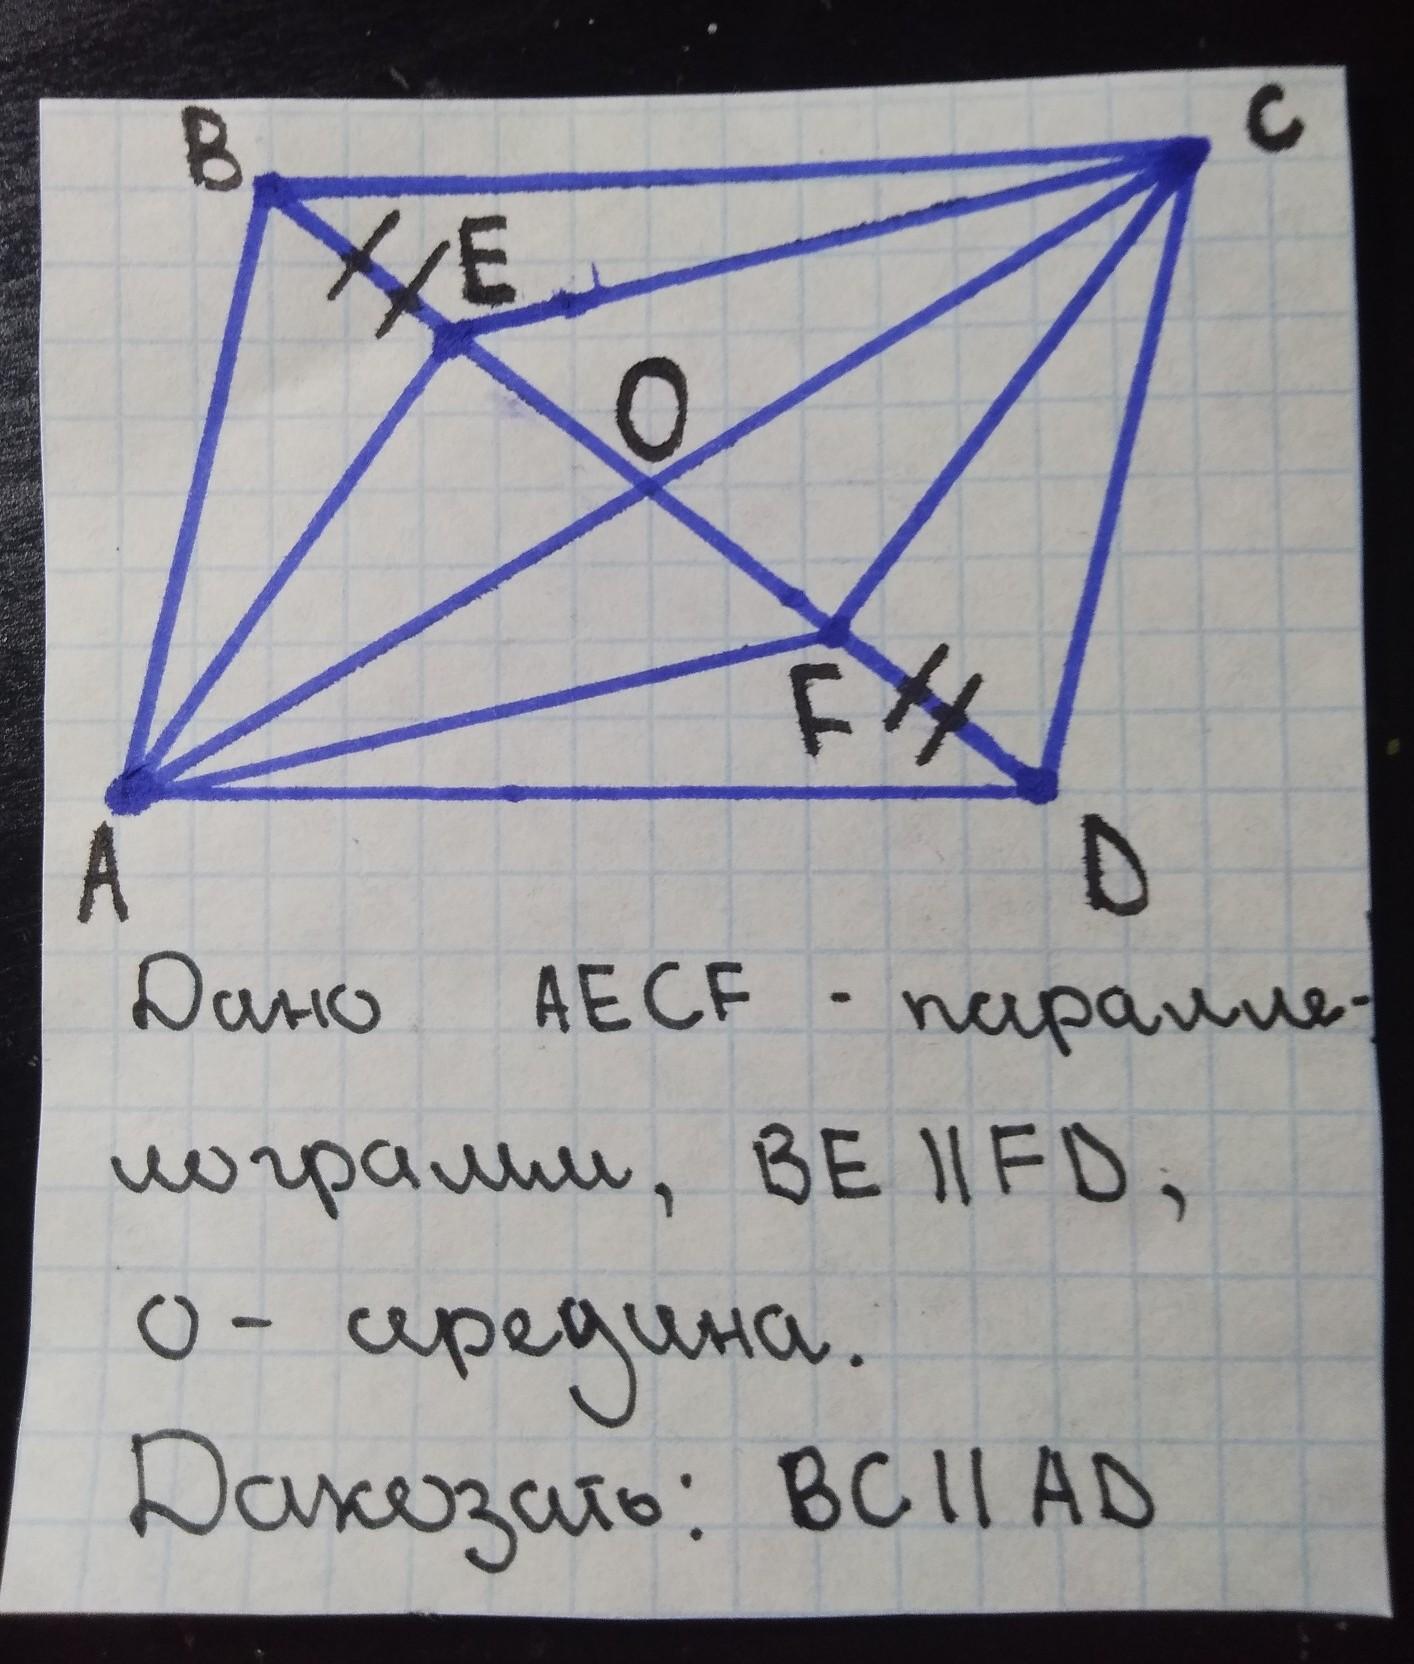 B C
E
O
F
A D
Дано AECF - паралле-
лограмм, BE || FD,
О - середина.
Доказать: BC || AD